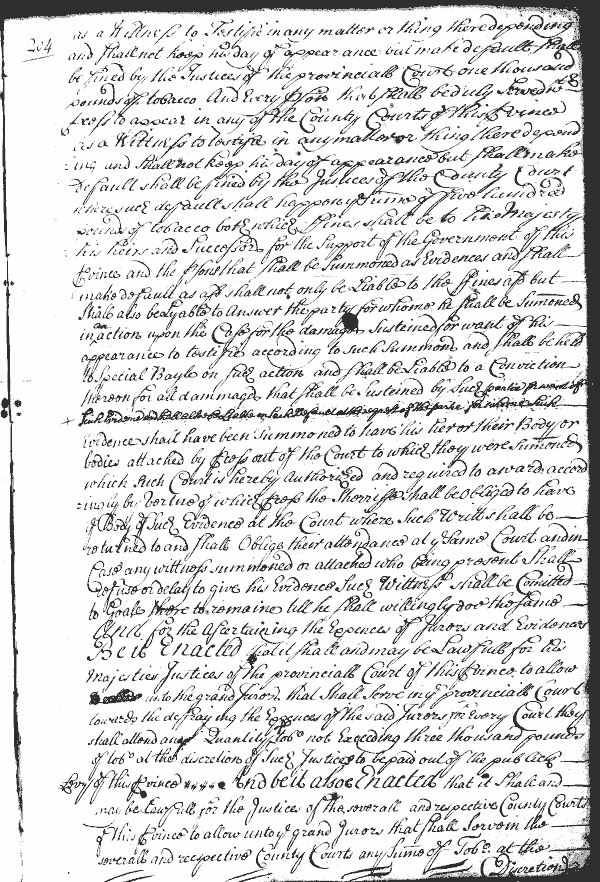 204
as a Wittness to Testifie in any matter or thing there depending
and shall not keep his day of appearance but make default shall
be fined by the Justices of the provinciall Court one thousand
pounds of tobacco And Every pson that shall be duly served wth
pcess to appear in any of the County Courts of this pvince
as a Wittness to testifie in any matter or thing there depend
ing and shall not keep his day of appearance but shall make
default shall be fined by the Justices of the County Court
where such default shall happen ye sume of five hundred
pounds of tobacco both which ffines shall be to his Majesty
his heirs and Successors for the Support of the Government of this
pvince and the psons that shall be Summoned as Evidences and shall
make default as afd shall not only be Liable to the ffines afd but
shall also be Lyable to Answer the party for whome he shall be Sumoned
in an action upon the Case for the damages Sustained for want of his
appearance to testifie according to such Summons and shall be held
to Special Bayle on such action and shall be Liable to a Conviction
thereon for all dammages that shall be Sustained by Such
Evidence shall have been Summoned to have his her or their Body or
bodies attached by pcess out of the Court to which they were Sumoned
which Such Court is hereby Authorized and required to award accord
ingly by Vertue of which pcess the Sherriffe shall be Obliged to have
ye Body of Such Evidence at the Court where Such Writt shall be
returned to and shall Oblige their attendance at ye Same Court and in
Case any wittness summoned or attached who being present Shall
refuse or delay to give his Evidence Such Wittness shall be Comitted
to Goale there to remaine till he shall willingly doe the same
And for the Ascertaining the Expences of Jurors and Evidences
Be it Enacted that it shall and may be Lawfull for his
Majesties Justices of the provinciall Court of this pvince to allow
unto the grand Jurors that shall Serve in ye provinciall Court
towards the defraying the Expences of the said Jurors for Every Court they
shall attend any Quantity of Tobo not Exceeding three thousand pounds
of tobo at the discretion of Such Justices to be paid out of the publick
Levy of this pvince And be it also Enacted that it shall and
may be Lawfull for the Justices of the severall and respective County Courts
of this pvince to allow unto ye grand Jurors that shall Serve in the
severall and respective County Courts any Sume of Tobo at the
Discretion